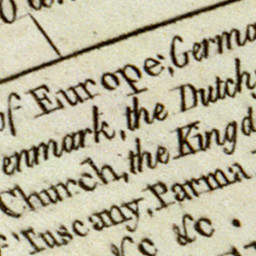 of Europe; Germa
enmark, the Dutch
Church, the Kingd
Tuscany, Parma
&c &c.